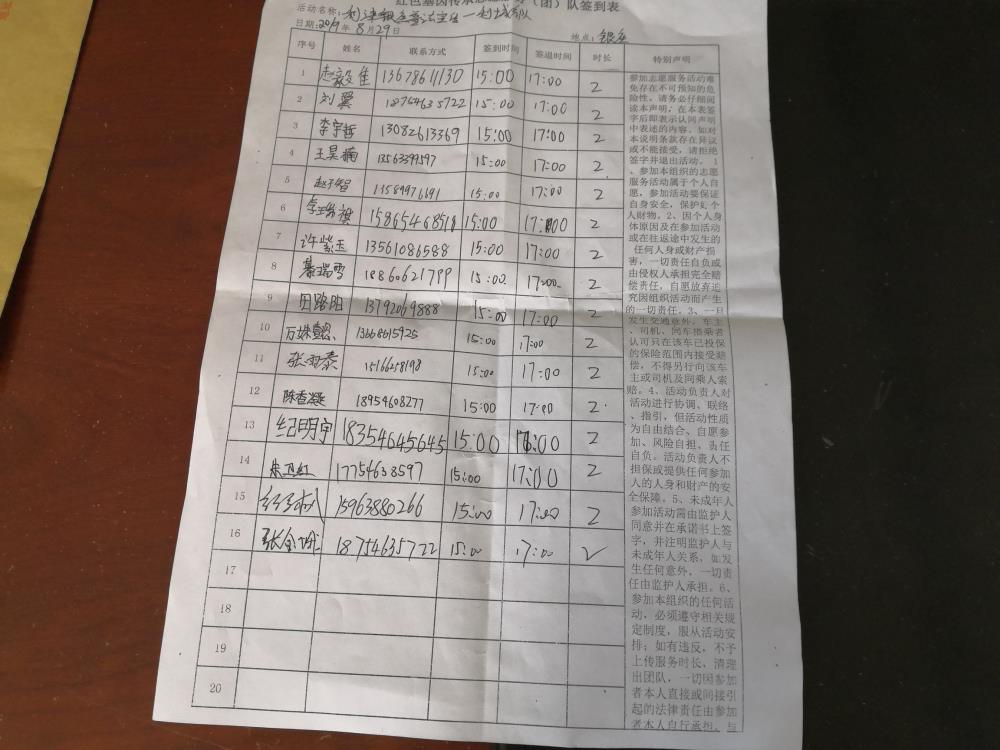 队签到表
活动名称:
日期:2019年8月29日 地点:
序号 姓名 联系方式 签到时间 签退时间 时长 特别声明
1 赵毅佳 13678611130 15:00 17:00 2
2 刘翼 18754635722 15:00 17:00 2
3 李宇哲 13082613369 15:00 17:00 2
4 王昊楠 13563399597 15:00 17:00 2
5 赵子智 15:00 17:00 2
6 15865468518 15:00 17:00 2
7 许紫玉 13561086588 15:00 17:00 2
8 慕瑞雪 18860621799 15:00 17:00 2
9 田路阳 13792069888 15:00 17:00 2
10 13668615925 15:00 17:00 2
11 张雨泰 15166258198 15:00 17:00 2
12 陈香凝 18954608277 15:00 17:00 2
13 纪明宇 18354645645 15:00 17:00 2
14 17754638597 15:00 17:00 2
15 15963880266 15:00 17:00 2
16 18754635722 15:00 17:00 2
17
18
19
20
参加志愿服务活动难
免存在不可预知的危
险性,请务必仔细阅
读本声明,在本表签
字后即表示认同声明
中表述的内容。如对
本说明条款存在异议
或不能接受,请拒绝
签字并退出活动。1
、参加本组织的志愿
服务活动属于个人自
愿,参加活动要保证
自身安全,保护好个
人财物。2、因个人身
体原因及在参加活动
或在往返途中发生的
任何人身或财产损
害,一切责任自负或
由侵权人承担完全赔
偿责任,自愿放弃追
究因组织活动而产生
的一切责任。3、一旦
发生交通意外,车主
、司机、同车搭乘者
认可只在该车已投保
的保险范围内接受赔
偿,不得另行向该车
主或司机及同乘人索
赔。4、活动负责人对
活动进行协调、联络
、指引,但活动性质
为自由结合、自愿参
加、风险自担、责任
自负。活动负责人不
担保或提供任何参加
人的人身和财产的安
全保障。5、未成年人
参加活动需由监护人
同意并在承诺书上签
字,并注明监护人与
未成年人关系,如发
生任何意外,一切责
任由监护人承担。6、
参加本组织的任何活
动,必须遵守相关规
定制度,服从活动安
排;如有违反,不予
上传服务时长、清理
出团队,一切因参加
者本人直接或间接引
起的法律责任由参加
者本人自行承担,与